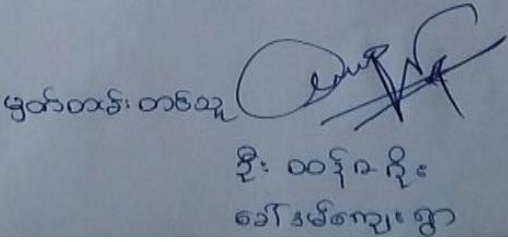 မှတ်တမ်းတင်သူ
ဦးထန်ဂိုး
ခေါ်ဒမ်ကျေးရွာ